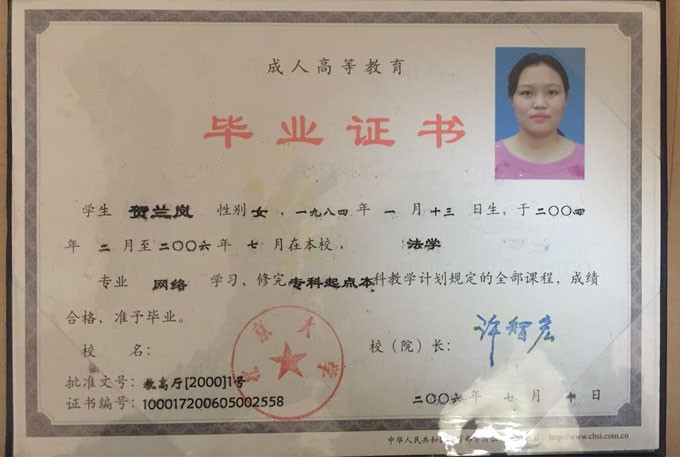 成人高等教育
毕业证书
学生 贺兰岚 性别 女，一九八四年 一 月 十三 日生，于二〇〇四
年 二 月至二〇〇六年 七 月在本校， 法学
专业 网络 学习，修完专科起点本科教学计划规定的全部课程，成绩
合格，准予毕业。
校 名： 北京大学 校（院）长： 许智宏
批准文号：教高厅[2000]1号
证书编号：100017200605002558 二〇〇六年 七 月 日
中华人民共和国 http://www.chsi.com.cn